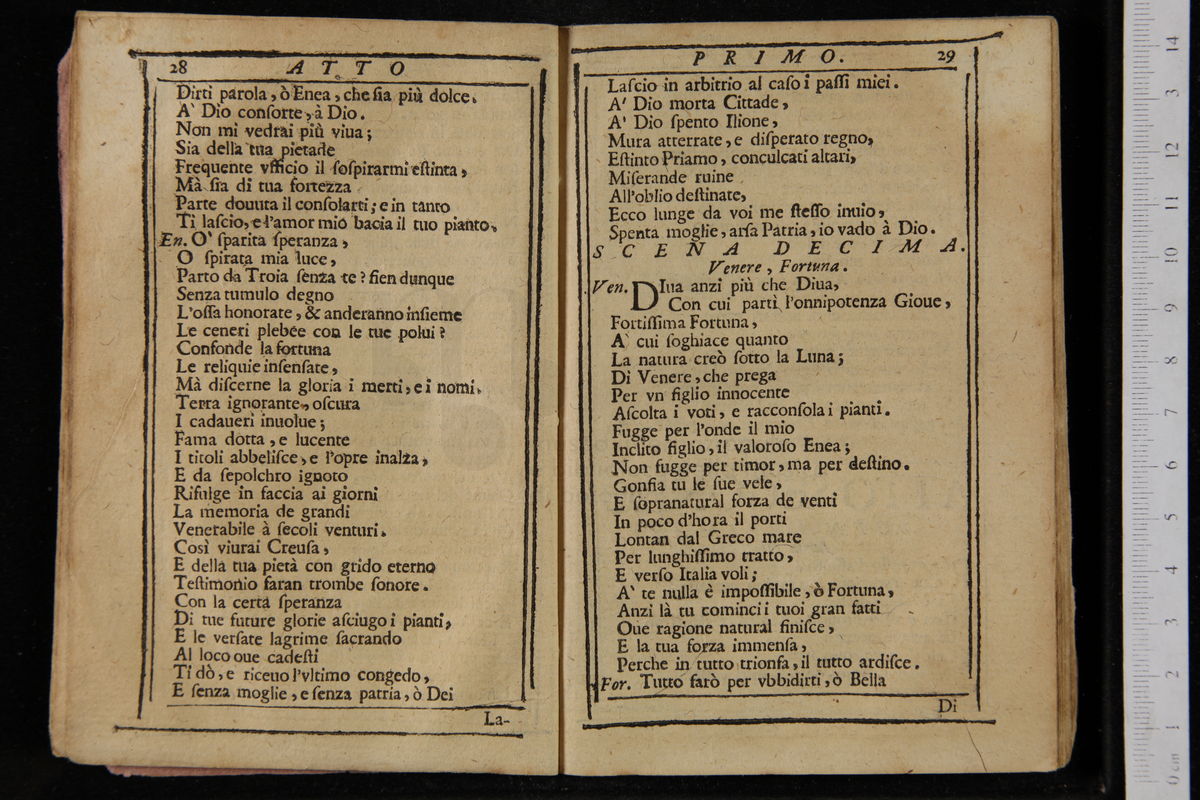 28 ATTO
Dirti parola, ò Enea, che ſia più dolce.
A` Dio conſorte, à Dio.
Non mi vedrai più viua;
Sia della tua pietade
Frequente vfficio il ſoſpirarmi eſtinta,
Mà ſia di tua fortezza
Parte douuta il conſolarti; e in tanto
Ti laſcio, e l'amor mio bacia il tuo pianto.
En. O' ſparita ſperanza,
O ſpirata mia luce,
Parto da Troia ſenza te? ſien dunque
Senza tumulo degno
L'oſſa honorate, & anderanno inſieme
Le ceneri plebee con le tue polui?
Confonde la fortuna
Le reliquie inſenſate,
Mà diſcerne la gloria i merti, e i nomi.
Terra ignorante, oſcura
I cadaueri inuolue;
Fama dotta, e lucente
I titoli abbeliſce, e l'opre inalza,
E da ſepolchro ignoto
Rifulge in faccia ai giorni
La memoria de grandi
Venerabile à ſecoli venturi.
Così viurai Creuſa,
E della tua pietà con grido eterno
Teſtimonio faran trombe ſonore.
Con la certa ſperanza
Di tue future glorie aſciugo i pianti,
E le verſate lagrime ſacrando
Al loco oue cadeſti
Ti dò, e riceuo l'vltimo congedo,
E ſenza moglie, e ſenza patria, ò Dei
La-
PRIMO. 29
Laſcio in arbitrio al caſo i paſſi miei.
A' Dio morta Cittade,
A' Dio ſpento Ilione,
Mura atterrate, e diſperato regno,
Eſtinto Priamo, conculcati altari,
Miſerande ruine
All'oblio deſtinate,
Ecco lunge da voi me ſteſſo inuio,
Spenta moglie, arſa Patria, io vado à Dio.
SCENA DECIMA.
Venere, Fortuna.
Ven. DIua anzi più che Diua,
Con cui partì l'onnipotenza Gioue,
Fortiſſima Fortuna,
A` cui ſoghiace quanto
La natura creò ſotto la Luna;
Di Venere, che prega
Per vn figlio innocente
Aſcolta i voti, e racconſola i pianti.
Fugge per l'onde il mio
Inclito figlio, il valoroſo Enea;
Non fugge per timor, ma per deſtino.
Gonfia tu le ſue vele,
E ſopranatural forza de venti
In poco d'hora il porti
Lontan dal Greco mare
Per lunghiſſimo tratto,
E verſo Italia voli;
A` te nulla è impoſſibile, ò Fortuna,
Anzi là tu cominci i tuoi gran fatti
Oue ragione natural finiſce,
E la tua forza immenſa,
Perche in tutto trionfa, il tutto ardiſce.
For. Tutto farò per vbbidirti, ò Bella
Di
0 cm 1 2 3 4 5 6 7 8 9 10 11 12 3 14